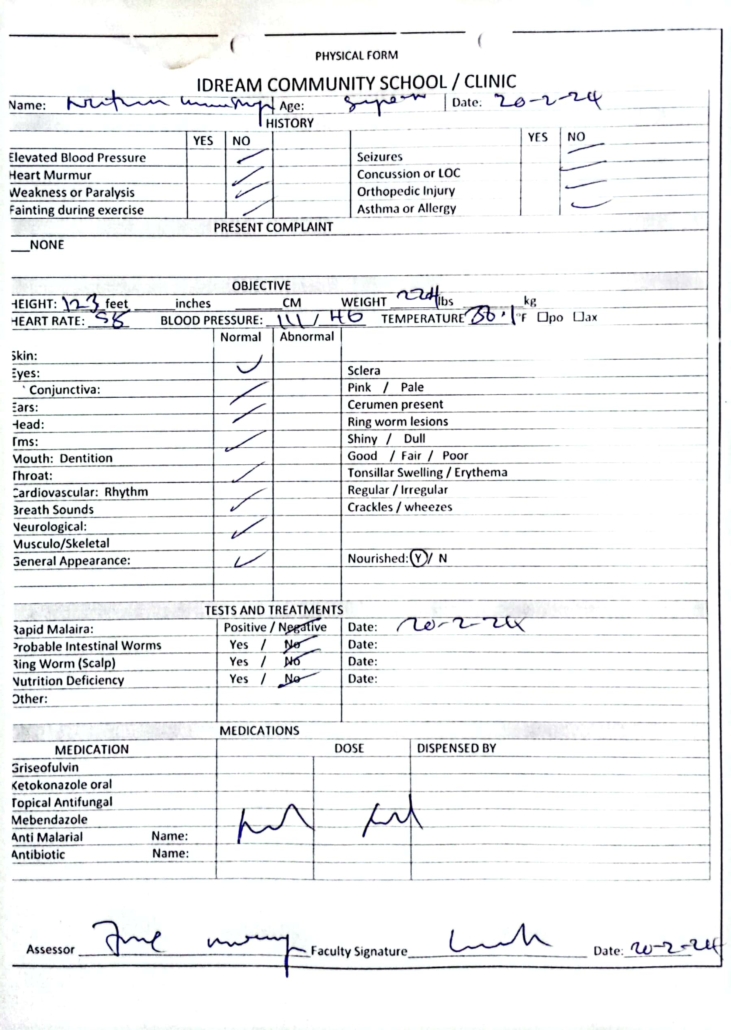 PHYSICAL FORM
IDREAM COMMUNITY SCHOOL / CLINIC
Name: Age: Date: 20-2-24
HISTORY
YES NO YES NO
Elevated Blood Pressure Seizures
Heart Murmur Concussion or LOC
Weakness or Paralysis Orthopedic Injury
Fainting during exercise Asthma or Allergy
PRESENT COMPLAINT
__NONE
OBJECTIVE
HEIGHT: 123 feet inches CM WEIGHT lbs kg
HEART RATE: 58 BLOOD PRESSURE: 111 / TEMPERATURE 36.1 °F ☐po ☐ax
Normal Abnormal
Skin:
Eyes: Sclera
Conjunctiva: Pink / Pale
Ears: Cerumen present
Head: Ring worm lesions
Tms: Shiny / Dull
Mouth: Dentition Good / Fair / Poor
Throat: Tonsillar Swelling / Erythema
Cardiovascular: Rhythm Regular / Irregular
Breath Sounds Crackles / wheezes
Neurological:
Musculo/Skeletal
General Appearance: Nourished: Y / N
TESTS AND TREATMENTS
Rapid Malaira: Positive / Negative Date: 20-2-24
Probable Intestinal Worms Yes / No Date:
Ring Worm (Scalp) Yes / No Date:
Nutrition Deficiency Yes / No Date:
Other:
MEDICATIONS
MEDICATION DOSE DISPENSED BY
Griseofulvin
Ketokonazole oral
Topical Antifungal
Mebendazole
Anti Malarial Name:
Antibiotic Name:
Assessor Faculty Signature Date: 20-2-24